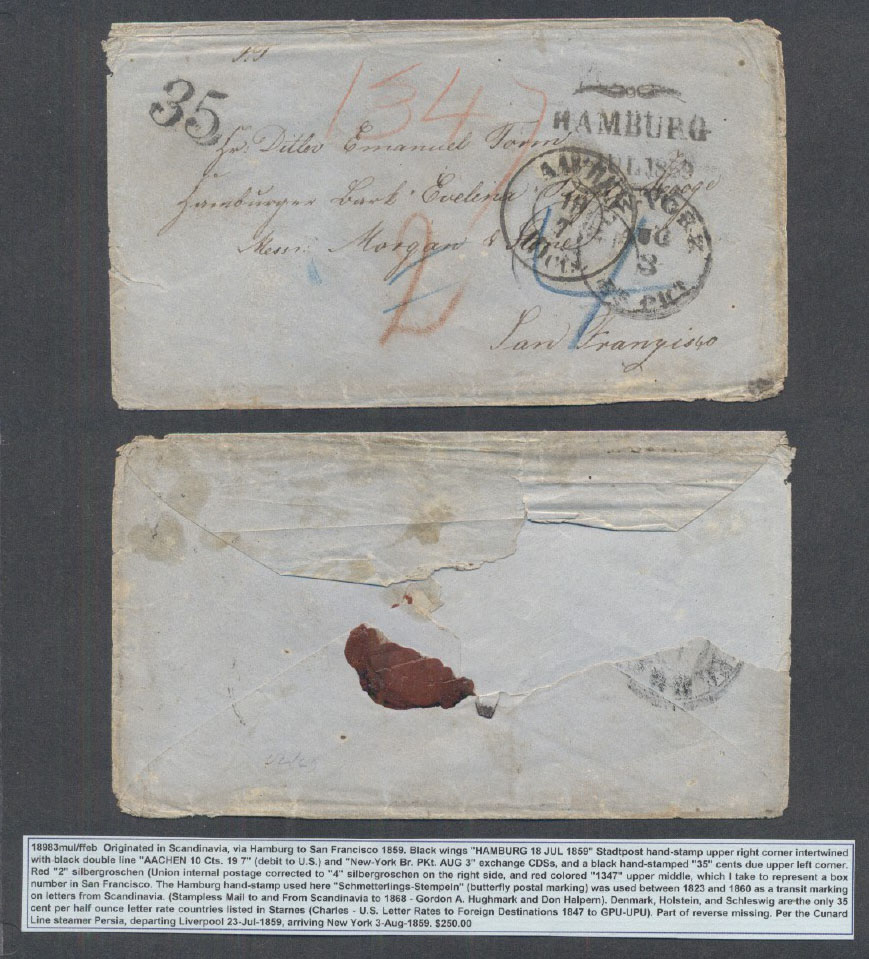 35
1347
HAMBURG
JUL 1859
Hr. Ditlev Emanuel Torm
Hamburger Bark Evelena
AACHEN
19
7
10 Cts.
NEW-YORK
AUG
3
BR. PKT.
Messr. Morgan & Stone
2
4
San Franzisco
18983mul/ffeb Originated in Scandinavia, via Hamburg to San Francisco 1859. Black wings "HAMBURG 18 JUL 1859" Stadtpost hand-stamp upper right corner intertwined
with black double line "AACHEN 10 Cts. 19 7" (debit to U.S.) and "New-York Br. PKt. AUG 3" exchange CDSs, and a black hand-stamped "35" cents due upper left corner.
Red "2" silbergroschen (Union internal postage corrected to "4" silbergroschen on the right side, and red colored "1347" upper middle, which I take to represent a box
number in San Francisco. The Hamburg hand-stamp used here "Schmetterlings-Stempeln" (butterfly postal marking) was used between 1823 and 1860 as a transit marking
on letters from Scandinavia. (Stampless Mail to and From Scandinavia to 1868 - Gordon A. Hughmark and Don Halpern). Denmark, Holstein, and Schleswig are the only 35
cent per half ounce letter rate countries listed in Starnes (Charles - U.S. Letter Rates to Foreign Destinations 1847 to GPU-UPU). Part of reverse missing. Per the Cunard
Line steamer Persia, departing Liverpool 23-Jul-1859, arriving New York 3-Aug-1859. $250.00